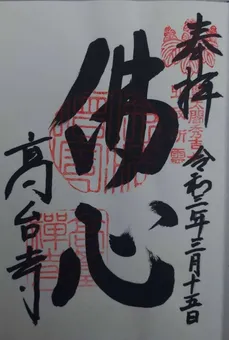 奉拝
令和二年三月十五日
佛心
高台寺